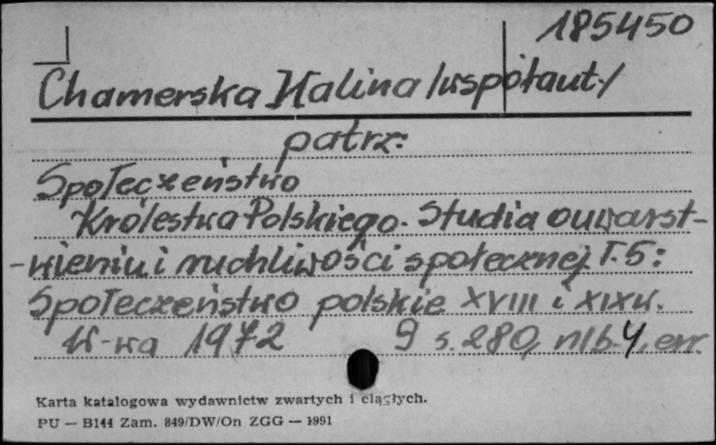 185450
Chamerska Halina /współaut./
patrz:
Społeczeństwo
Królestwa Polskiego. Studia o uwarst-
-wieniu i ruchliwości społecznej T. 5:
Społeczeństwo polskie XVIII i XIX w.
W-wa 1972 9 s. 280, nlb. 4, err.
Karta katalogowa wydawnictw zwartych i ciągłych.
PU — B144 Zam. 849/DW/On ZGG — 1991